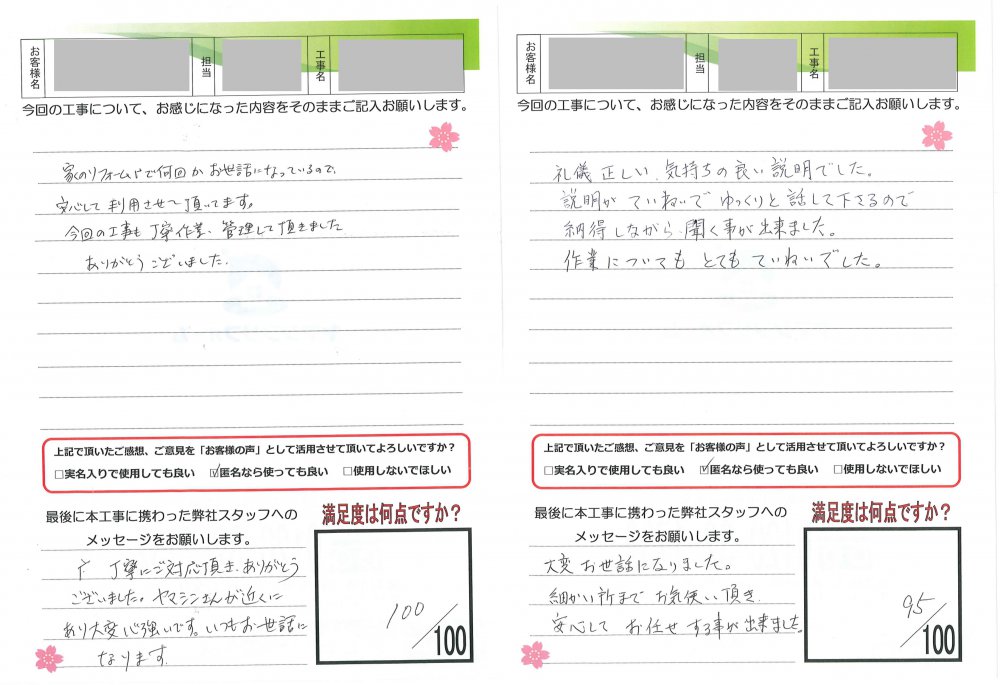 お客様名
担当
工事名
今回の工事について、お感じになった内容をそのままご記入お願いします。
家のリフォームで何回かお世話になっているので、
安心して利用させて頂いてます。
今回の工事も丁寧作業、管理して頂きました
ありがとうございました。
上記で頂いたご感想、ご意見を「お客様の声」として活用させて頂いてよろしいですか?
□実名入りで使用しても良い ☑匿名なら使っても良い □使用しないでほしい
最後に本工事に携わった弊社スタッフへの
メッセージをお願いします。
丁寧にご対応頂き、ありがとう
ございました。ヤマシンさんが近くに
あり大変心強いです。いつもお世話に
なります。
満足度は何点ですか?
100/100
お客様名
担当
工事名
今回の工事について、お感じになった内容をそのままご記入お願いします。
礼儀正しい、気持ちの良い説明でした。
説明がていねいでゆっくりと話して下さるので
納得しながら、聞く事が出来ました。
作業についてもとてもていねいでした。
上記で頂いたご感想、ご意見を「お客様の声」として活用させて頂いてよろしいですか?
□実名入りで使用しても良い ☑匿名なら使っても良い □使用しないでほしい
最後に本工事に携わった弊社スタッフへの
メッセージをお願いします。
大変お世話になりました。
細かい所までお気使い頂き
安心してお任せする事が出来ました。
満足度は何点ですか?
95/100